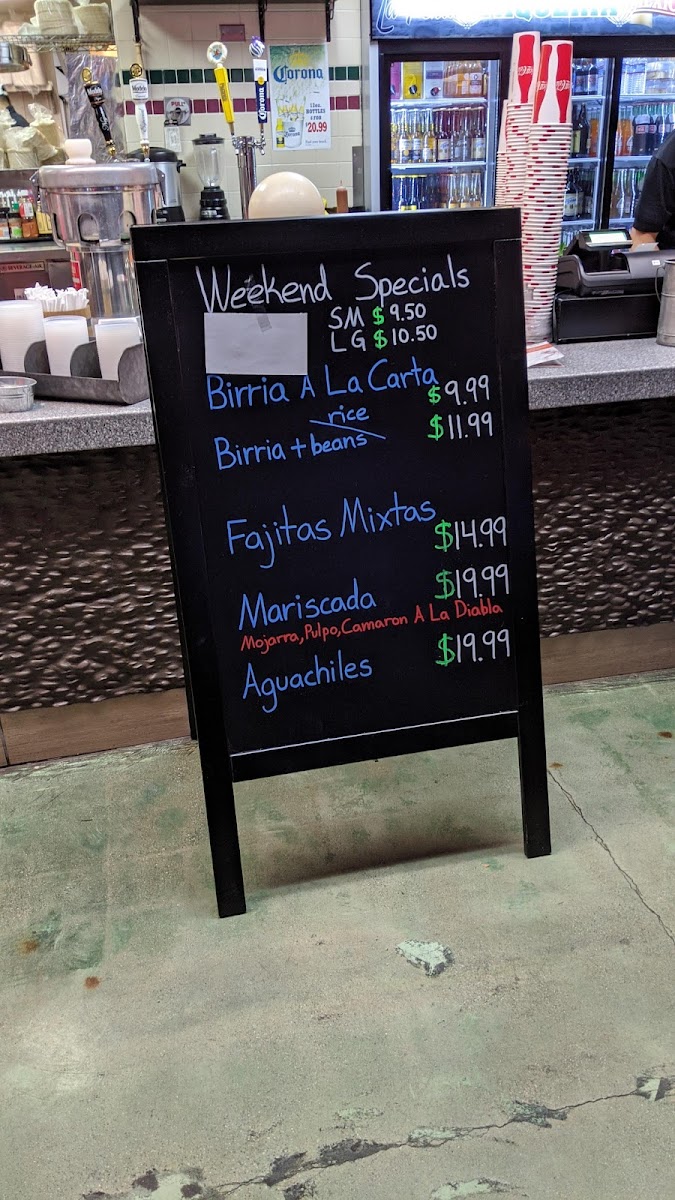 Weekend Specials
SM $9.50
LG $10.50
Birria A La Carta $9.99
Birria + rice beans $11.99
Fajitas Mixtas $14.99
Mariscada $19.99
Mojarra, Pulpo, Camaron A La Diabla
Aguachiles $19.99
Corona
$20.99
PULL
Modelo
Corona